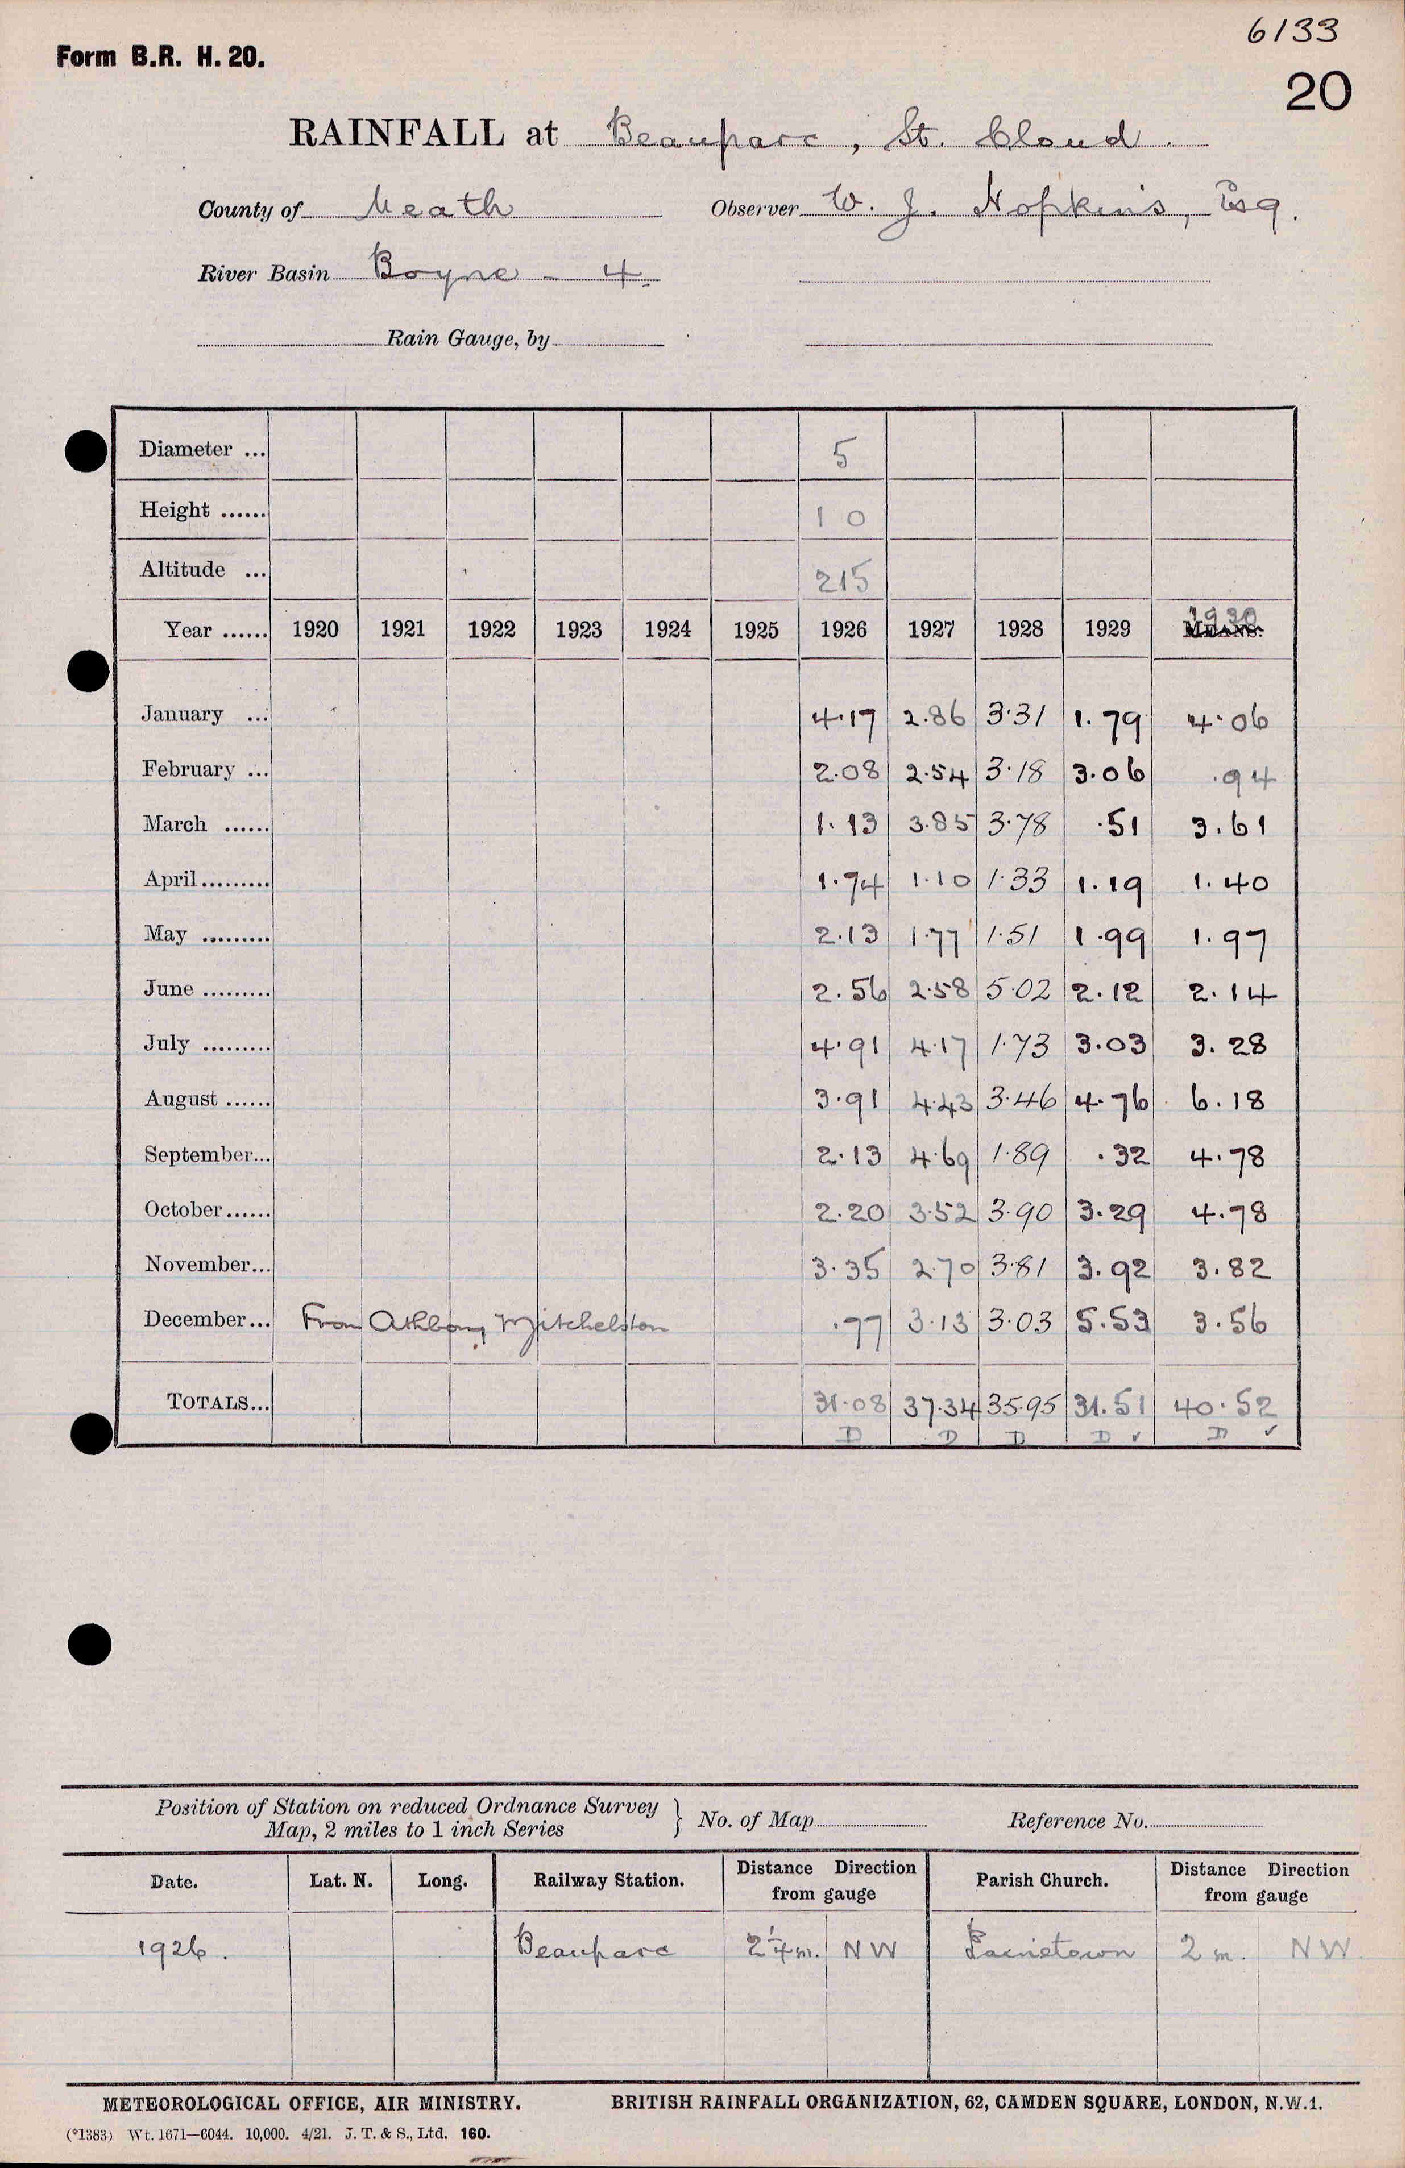 6133
Form B.R. H. 20.
20
RAINFALL at Beauparc, St. Cloud.
County of Meath Observer W. J. Hopkins, Esq.
River Basin Boyne - 4.
Rain Gauge, by
Diameter ... 5
Height ...... 1 0
Altitude ... 215
Year ...... 1920 1921 1922 1923 1924 1925 1926 1927 1928 1929 1930 MEANS.
January ... 4.17 2.86 3.31 1.79 4.06
February ... 2.08 2.54 3.18 3.06 .94
March ...... 1.13 3.85 3.78 .51 3.61
April......... 1.74 1.10 1.33 1.19 1.40
May ......... 2.13 1.77 1.51 1.99 1.97
June ......... 2.56 2.58 5.02 2.12 2.14
July ......... 4.91 4.17 1.73 3.03 3.28
August ...... 3.91 4.43 3.46 4.76 6.18
September... 2.13 4.69 1.89 .32 4.78
October...... 2.20 3.52 3.90 3.29 4.78
November... 3.35 2.70 3.81 3.92 3.82
December... From Athboy Mitchelston .77 3.13 3.03 5.53 3.56
TOTALS... 31.08 37.34 35.95 31.51 40.52
D D D D ✓ D ✓
Position of Station on reduced Ordnance Survey
Map, 2 miles to 1 inch Series } No. of Map Reference No.
Date. Lat. N. Long. Railway Station. Distance Direction from gauge Parish Church. Distance Direction from gauge
1926. Beauparc 2¼ m. NW Painetown 2 m. NW.
METEOROLOGICAL OFFICE, AIR MINISTRY. BRITISH RAINFALL ORGANIZATION, 62, CAMDEN SQUARE, LONDON, N.W.1.
(*1383) Wt. 1671—6044. 10,000. 4/21. J. T. & S., Ltd. 160.